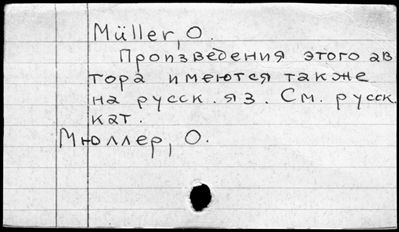 Müller, O.
Произведения этого ав
тора имеются также
на русск. яз. См. русск.
кат.
Мюллер, О.